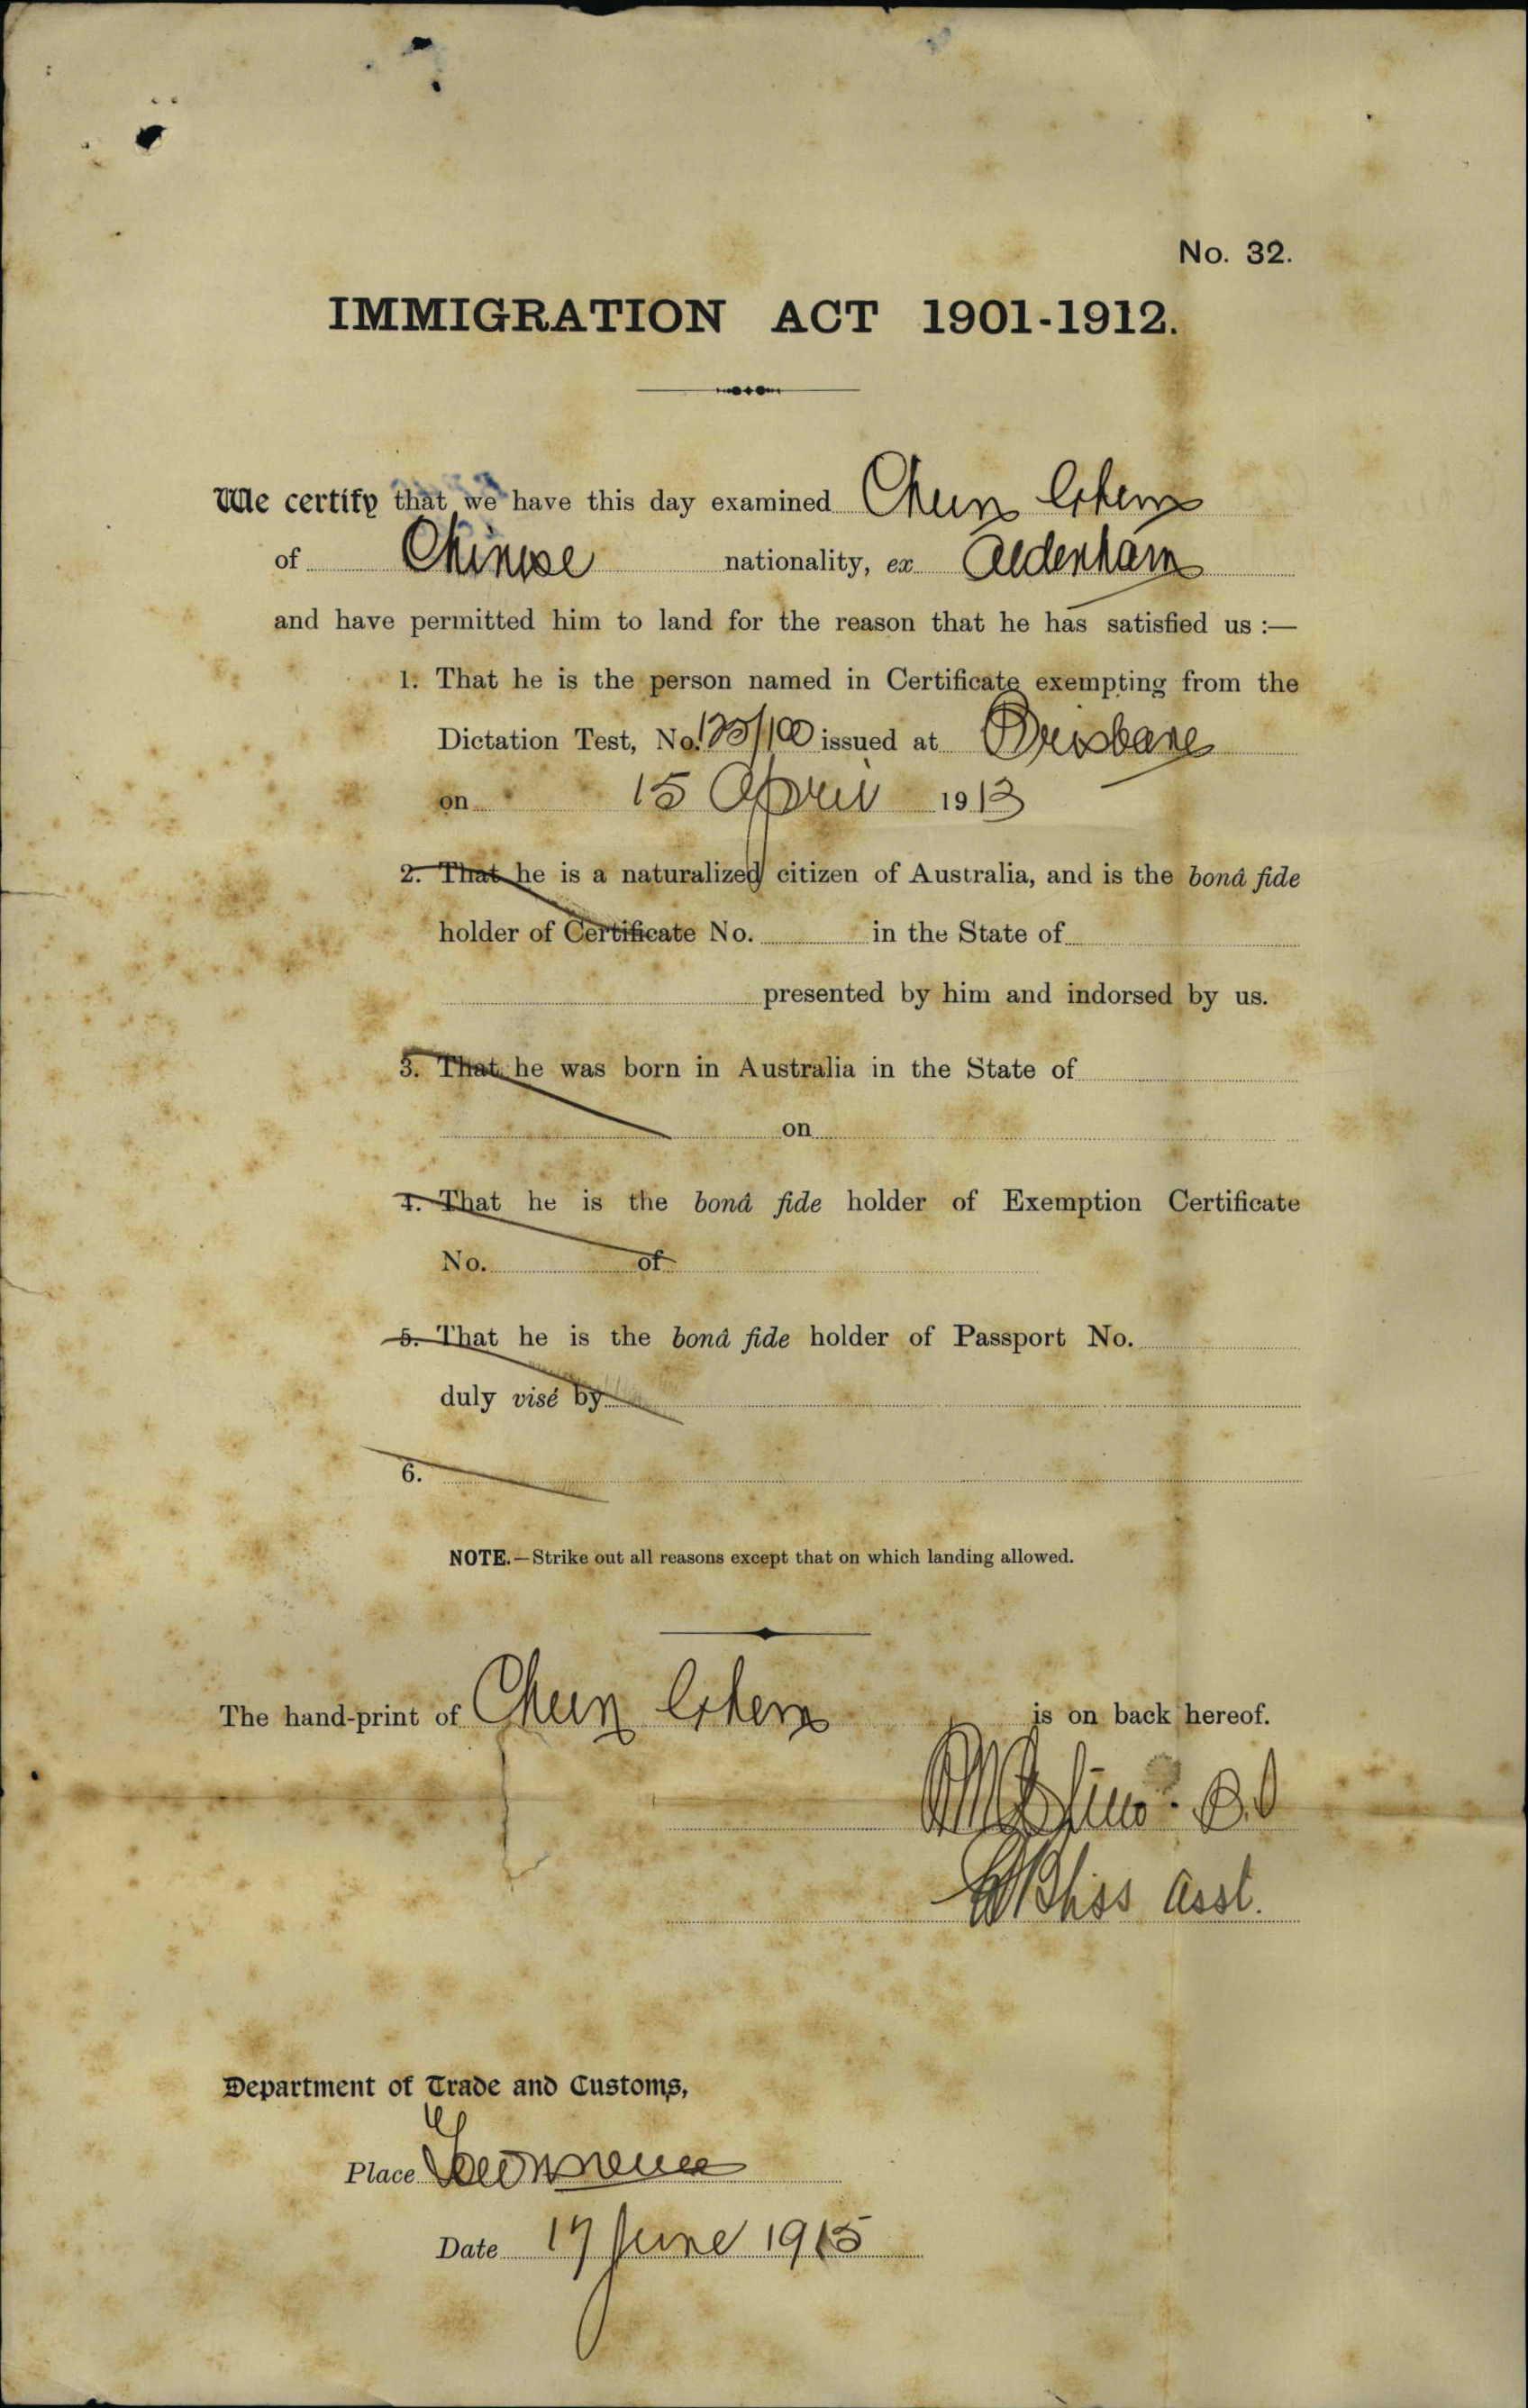 No. 32.
IMMIGRATION ACT 1901-1912.
We certify that we have this day examined Chun
of Chinese nationality, ex Aldenham
and have permitted him to land for the reason that he has satisfied us :—
1. That he is the person named in Certificate exempting from the
Dictation Test, No. issued at Brisbane
on 15 April 1913
2. That he is a naturalized citizen of Australia, and is the bonâ fide
holder of Certificate No. in the State of
presented by him and indorsed by us.
3. That he was born in Australia in the State of
on
4. That he is the bonâ fide holder of Exemption Certificate
No. of
5. That he is the bonâ fide holder of Passport No.
duly visé by
6.
NOTE.—Strike out all reasons except that on which landing allowed.
The hand-print of Chun is on back hereof.
Bliss Asst.
Department of Trade and Customs,
Place
Date 17 June 1915